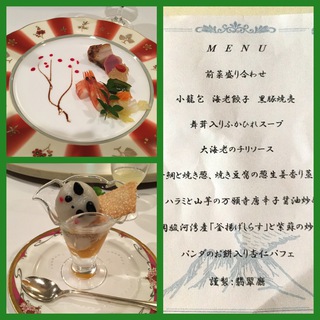 MENU
前菜盛り合わせ
小籠包 海老餃子 黒豚焼売
舞茸入りふかひれスープ
大海老のチリソース
と焼き葱、焼き豆腐の葱生姜香り蒸
ハラミと山芋の万願寺唐辛子醤油炒
駿河湾産「釜揚げしらす」と紫蘇の炒
パンダのお餅入り杏仁パフェ
謹製:翡翠廳